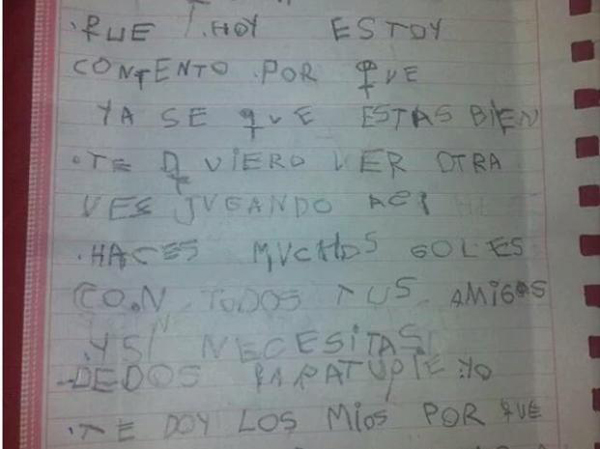 .RUE / .HOY ESTOY
CONTENTO .POR QVE
YA SE QVE ESTAS BIEN
.TE QVIERO VER OTRA
VES JVGANDO ACI
.HACES MVCHOS GOLES
CON TODOS TUS AMIGOS
.YSI NECESITAS
-DEDOS PARATUPIE YO
.TE DOY LOS MIOS POR QVE